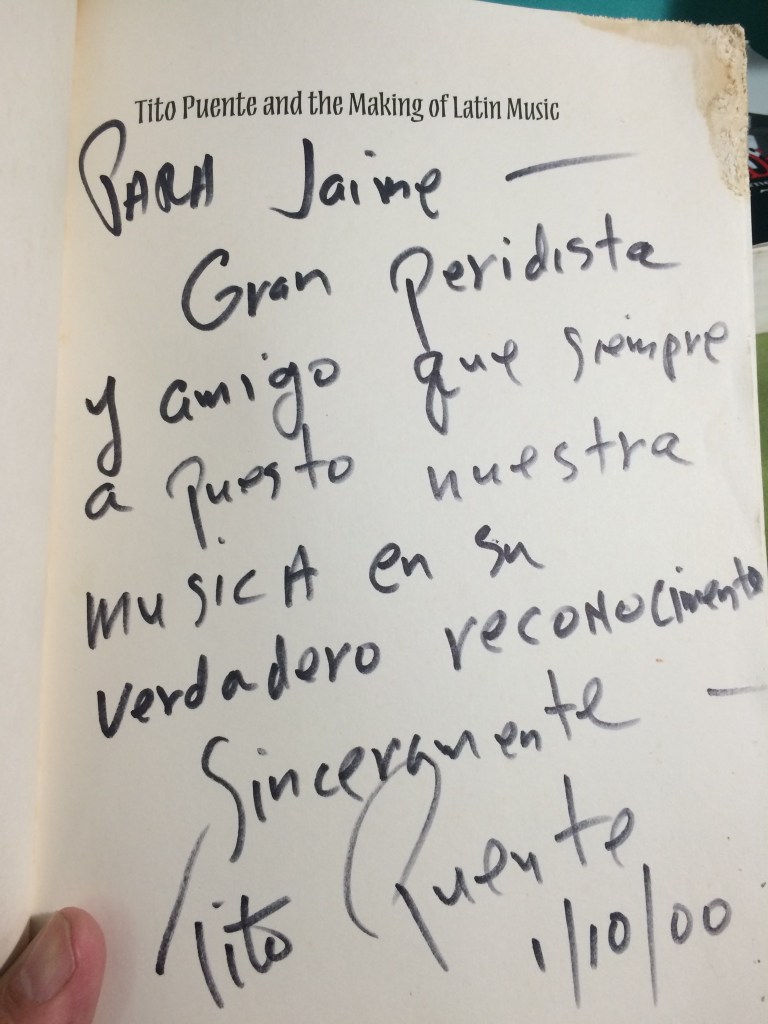 Tito Puente and the Making of Latin Music
PARA Jaime —
Gran peridista
y amigo que siempre
a puesto nuestra
musicA en su
verdadero reconocimento
Sinceramente —
Tito Puente
1/10/00